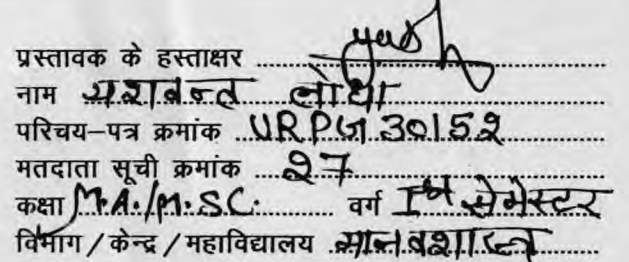 प्रस्तावक के हस्ताक्षर
नाम यशवन्त लोधा
परिचय–पत्र क्रमांक URPG 30152
मतदाता सूची क्रमांक 27
कक्षा M.A./M.SC. वर्ग Ist सेमेस्टर
विभाग / केन्द्र / महाविद्यालय मानवशास्त्र